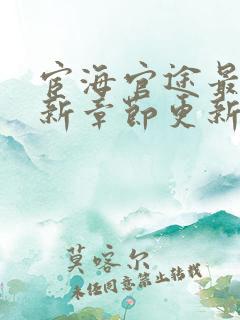 宦海官途最
新章节更新
莫喀尔
未经同意禁止转载